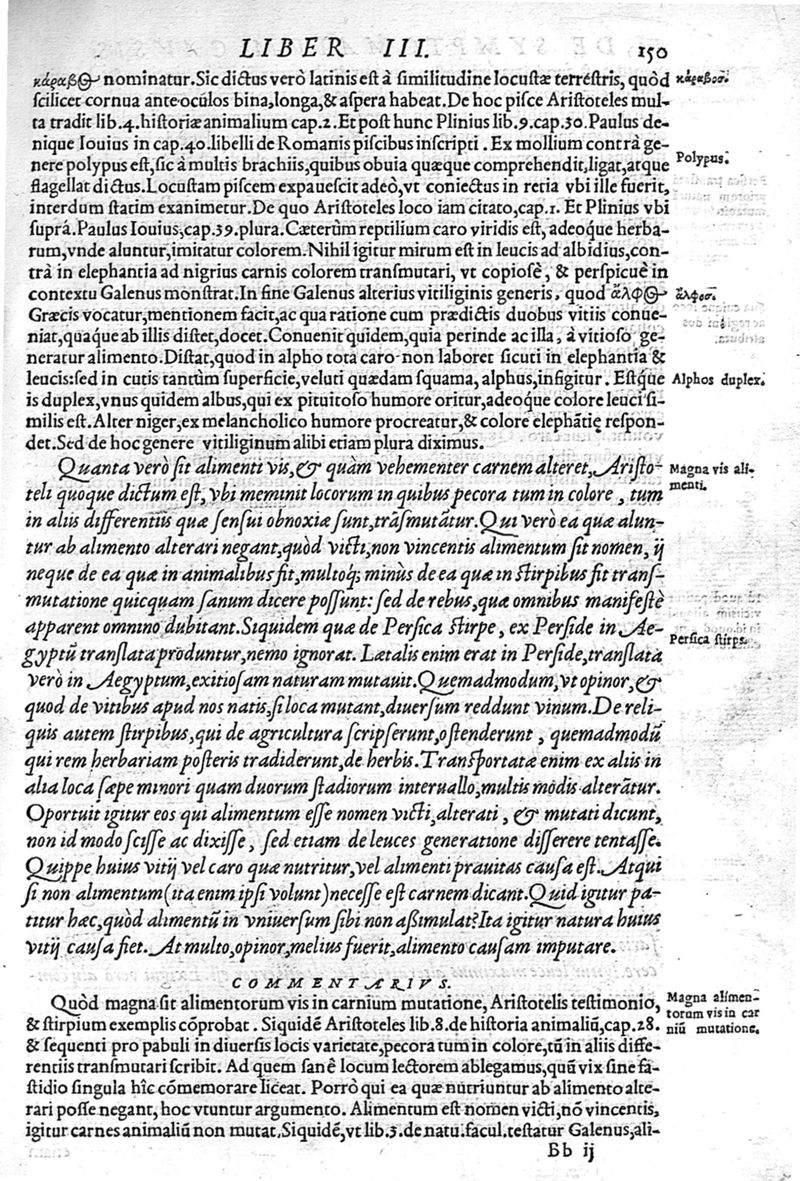 LIBER III. 150
κάραβος nominatur. Sic dictus verò latinis est à similitudine locustæ terrestris, quòd κάραβος.
scilicet cornua ante oculos bina, longa, & aspera habeat. De hoc pisce Aristoteles mul-
ta tradit lib. 4. historiæ animalium cap. 2. Et post hunc Plinius lib. 9. cap. 30. Paulus de-
nique Iouius in cap. 40. libelli de Romanis piscibus inscripti. Ex mollium contrà ge-
nere polypus est, sic à multis brachiis, quibus obuia quæque comprehendit, ligat, atque Polypus.
flagellat dictus. Locustam piscem expauescit adeò, vt coniectus in retia vbi ille fuerit,
interdum statim exanimetur. De quo Aristoteles loco iam citato, cap. 1. Et Plinius vbi
suprá. Paulus Iouius, cap. 39. plura. Cæterùm reptilium caro viridis est, adeoque herba-
rum, vnde aluntur, imitatur colorem. Nihil igitur mirum est in leucis ad albidius, con-
trà in elephantia ad nigrius carnis colorem transmutari, vt copiosè, & perspicuè in
contextu Galenus monstrat. In fine Galenus alterius vitiliginis generis, quod ἄλφος ἄλφος.
Græcis vocatur, mentionem facit, ac qua ratione cum prædictis duobus vitiis conue-
niat, quaq́ue ab illis distet, docet. Conuenit quidem, quia perinde ac illa, à vitioso ge-
neratur alimento. Distat, quod in alpho tota caro non laboret sicuti in elephantia &
leucis: sed in cutis tantùm superficie, veluti quædam squama, alphus, infigitur. Estq́ue Alphos duplex.
is duplex, vnus quidem albus, qui ex pituitoso humore oritur, adeoque colore leuci si-
milis est. Alter niger, ex melancholico humore procreatur, & colore elephātię respon-
det. Sed de hoc genere vitiliginum alibi etiam plura diximus.
Quanta verò sit alimenti vis, & quàm vehementer carnem alteret, Aristo- Magna vis ali-
teli quoque dictum est, vbi meminit locorum in quibus pecora tum in colore, tum menti.
in aliis differentiis quæ sensui obnoxiæ sunt, trāsmutātur. Qui verò ea quæ alun-
tur ab alimento alterari negant, quòd victi, non vincentis alimentum sit nomen, ij
neque de ea quæ in animalibus fit, multoq́; minùs de ea quæ in stirpibus fit trans-
mutatione quicquam sanum dicere possunt: sed de rebus, quæ omnibus manifestè
apparent omnino dubitant. Siquidem quæ de Persica stirpe, ex Perside in Ae- Persica stirps.
gyptū translata produntur, nemo ignorat. Lætalis enim erat in Perside, translata
verò in Aegyptum, exitiosam naturam mutauit. Quemadmodum, vt opinor, &
quod de vitibus apud nos natis, si loca mutant, diuersum reddunt vinum. De reli-
quis autem stirpibus, qui de agricultura scripserunt, ostenderunt, quemadmodū
qui rem herbariam posteris tradiderunt, de herbis. Transportatæ enim ex aliis in
alia loca sæpe minori quam duorum stadiorum interuallo, multis modis alterātur.
Oportuit igitur eos qui alimentum esse nomen victi, alterati, & mutati dicunt,
non id modo scisse ac dixisse, sed etiam de leuces generatione disserere tentasse.
Quippe huius vitij vel caro quæ nutritur, vel alimenti prauitas causa est. Atqui
si non alimentum (ita enim ipsi volunt) necesse est carnem dicant. Quid igitur pa-
titur hæc, quòd alimentū in vniuersum sibi non assimulat? Ita igitur natura huius
vitij causa fiet. At multo, opinor, melius fuerit, alimento causam imputare.
COMMENTARIVS.
Quòd magna sit alimentorum vis in carnium mutatione, Aristotelis testimonio, Magna alimen-
& stirpium exemplis cōprobat. Siquidē Aristoteles lib. 8. de historia animaliū, cap. 28. torum vis in car
& sequenti pro pabuli in diuersis locis varietate, pecora tum in colore, tū in aliis diffe- niū mutatione.
rentiis transmutari scribit. Ad quem sanè locum lectorem ablegamus, quū vix sine fa-
stidio singula hîc cōmemorare liceat. Porrò qui ea quæ nutriuntur ab alimento alte-
rari posse negant, hoc vtuntur argumento. Alimentum est nomen victi, nō vincentis,
igitur carnes animaliū non mutat. Siquidē, vt lib. 3. de natu. facul. testatur Galenus, ali-
Bb ij